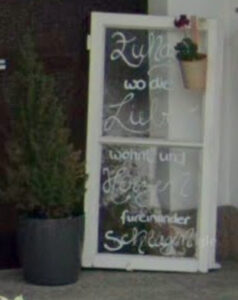 Zuha
wo die
Liebe
wohnt und
Herzen
füreinander
Schlagen